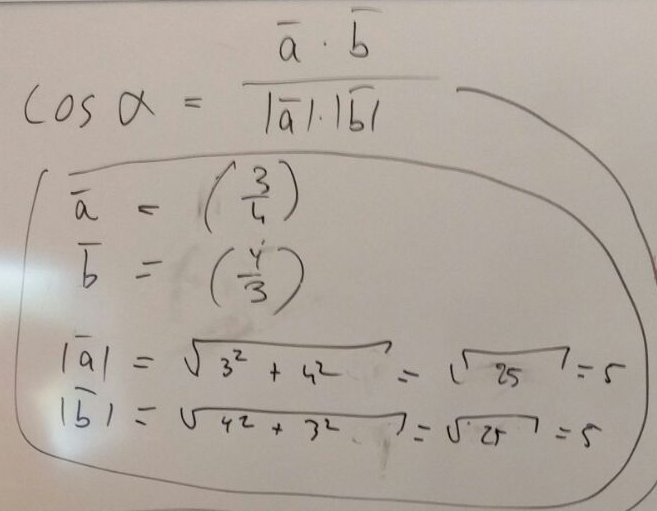 cos α = (a̅ · b̅) / (|a̅| · |b̅|)
a̅ = (3/4)
b̅ = (4/3)
|a̅| = √(3² + 4²) = √25 = 5
|b̅| = √(4² + 3²) = √25 = 5